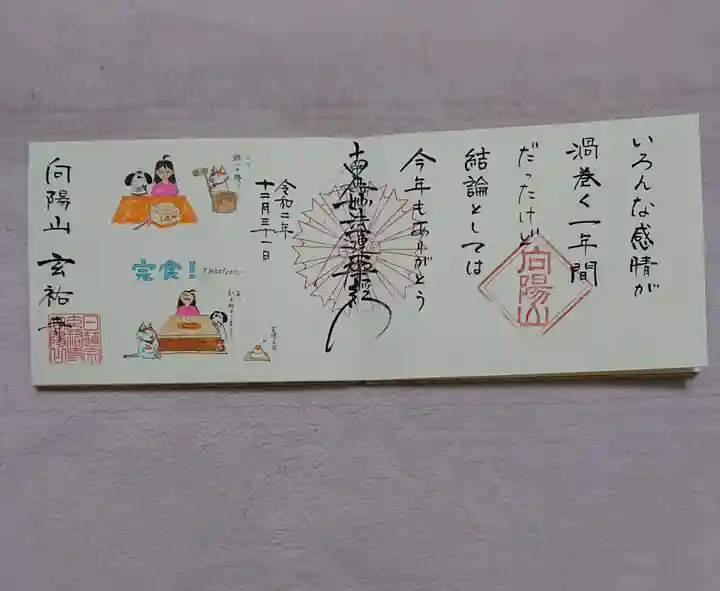 いろんな感情が
渦巻く一年間
だったけど
結論としては
今年もありがとう
向陽山
南無妙法蓮華経
令和二年
十二月三十一日
完食！
向陽山 玄祐寺